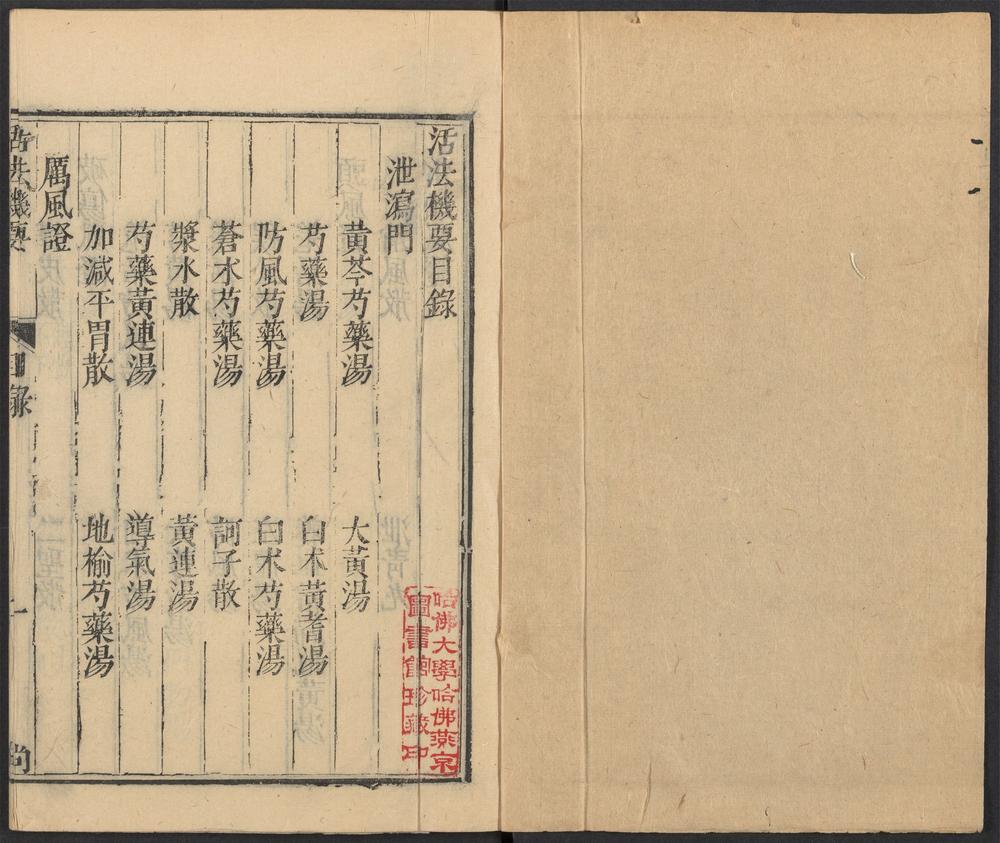 活法機要目錄
泄瀉門
黃芩芍藥湯　大黃湯
芍藥湯　白朮黃耆湯
防風芍藥湯　白朮芍藥湯
蒼朮芍藥湯　訶子散
漿水散　黃連湯
芍藥黃連湯　導氣湯
加減平胃散　地榆芍藥湯
厲風證
活法機要　目錄　一
哈佛大學哈佛燕京
圖書館珍藏印